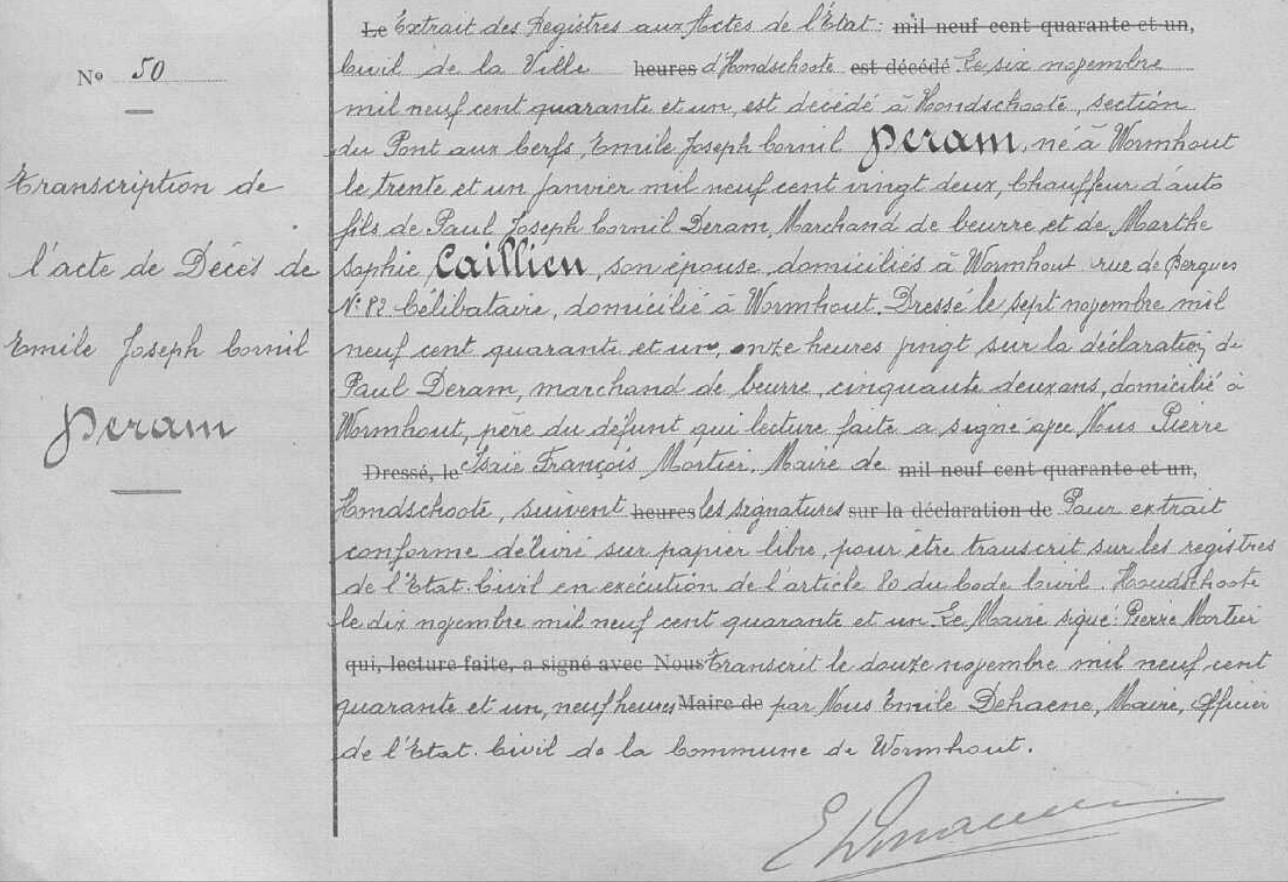 Nº 50
Transcription de
l'acte de Décès de
Emile Joseph Cornil
Deram
Le Extrait des Registres aux Actes de l'Etat. mil neuf cent quarante et un,
Civil de la Ville heures d'Hondschoote est décédé Le six novembre
mil neuf cent quarante et un, est décédé à Hondschoote, section
du Pont aux Cerfs, Emile Joseph Cornil Deram, né à Wormhout
le trente et un janvier mil neuf cent vingt deux, Chauffeur d'auto
fils de Paul Joseph Cornil Deram, Marchand de beurre et de Marthe
Sophie Caillieu, son épouse, domiciliés à Wormhout rue de Bergues
Nº 82 Célibataire, domicilié à Wormhout. Dressé le sept novembre mil
neuf cent quarante et un, onze heures vingt, sur la déclaration de
Paul Deram, marchand de beurre, cinquante deux ans, domicilié à
Wormhout, père du défunt qui lecture faite a signé avec Nous Pierre
Dressé, le Isaïe François Mortier, Maire de mil neuf cent quarante et un,
Hondschoote, suivent heures les signatures sur la déclaration de Pour extrait
conforme délivré sur papier libre, pour être transcrit sur les registres
de l'Etat-Civil en exécution de l'article 80 du Code Civil. Hondschoote
le dix novembre mil neuf cent quarante et un. Le Maire signé: Pierre Mortier
qui, lecture faite, a signé avec Nous Transcrit le douze novembre mil neuf cent
quarante et un, neuf heures Maire de par Nous Emile Dehaene, Maire, Officier
de l'Etat-Civil de la Commune de Wormhout.